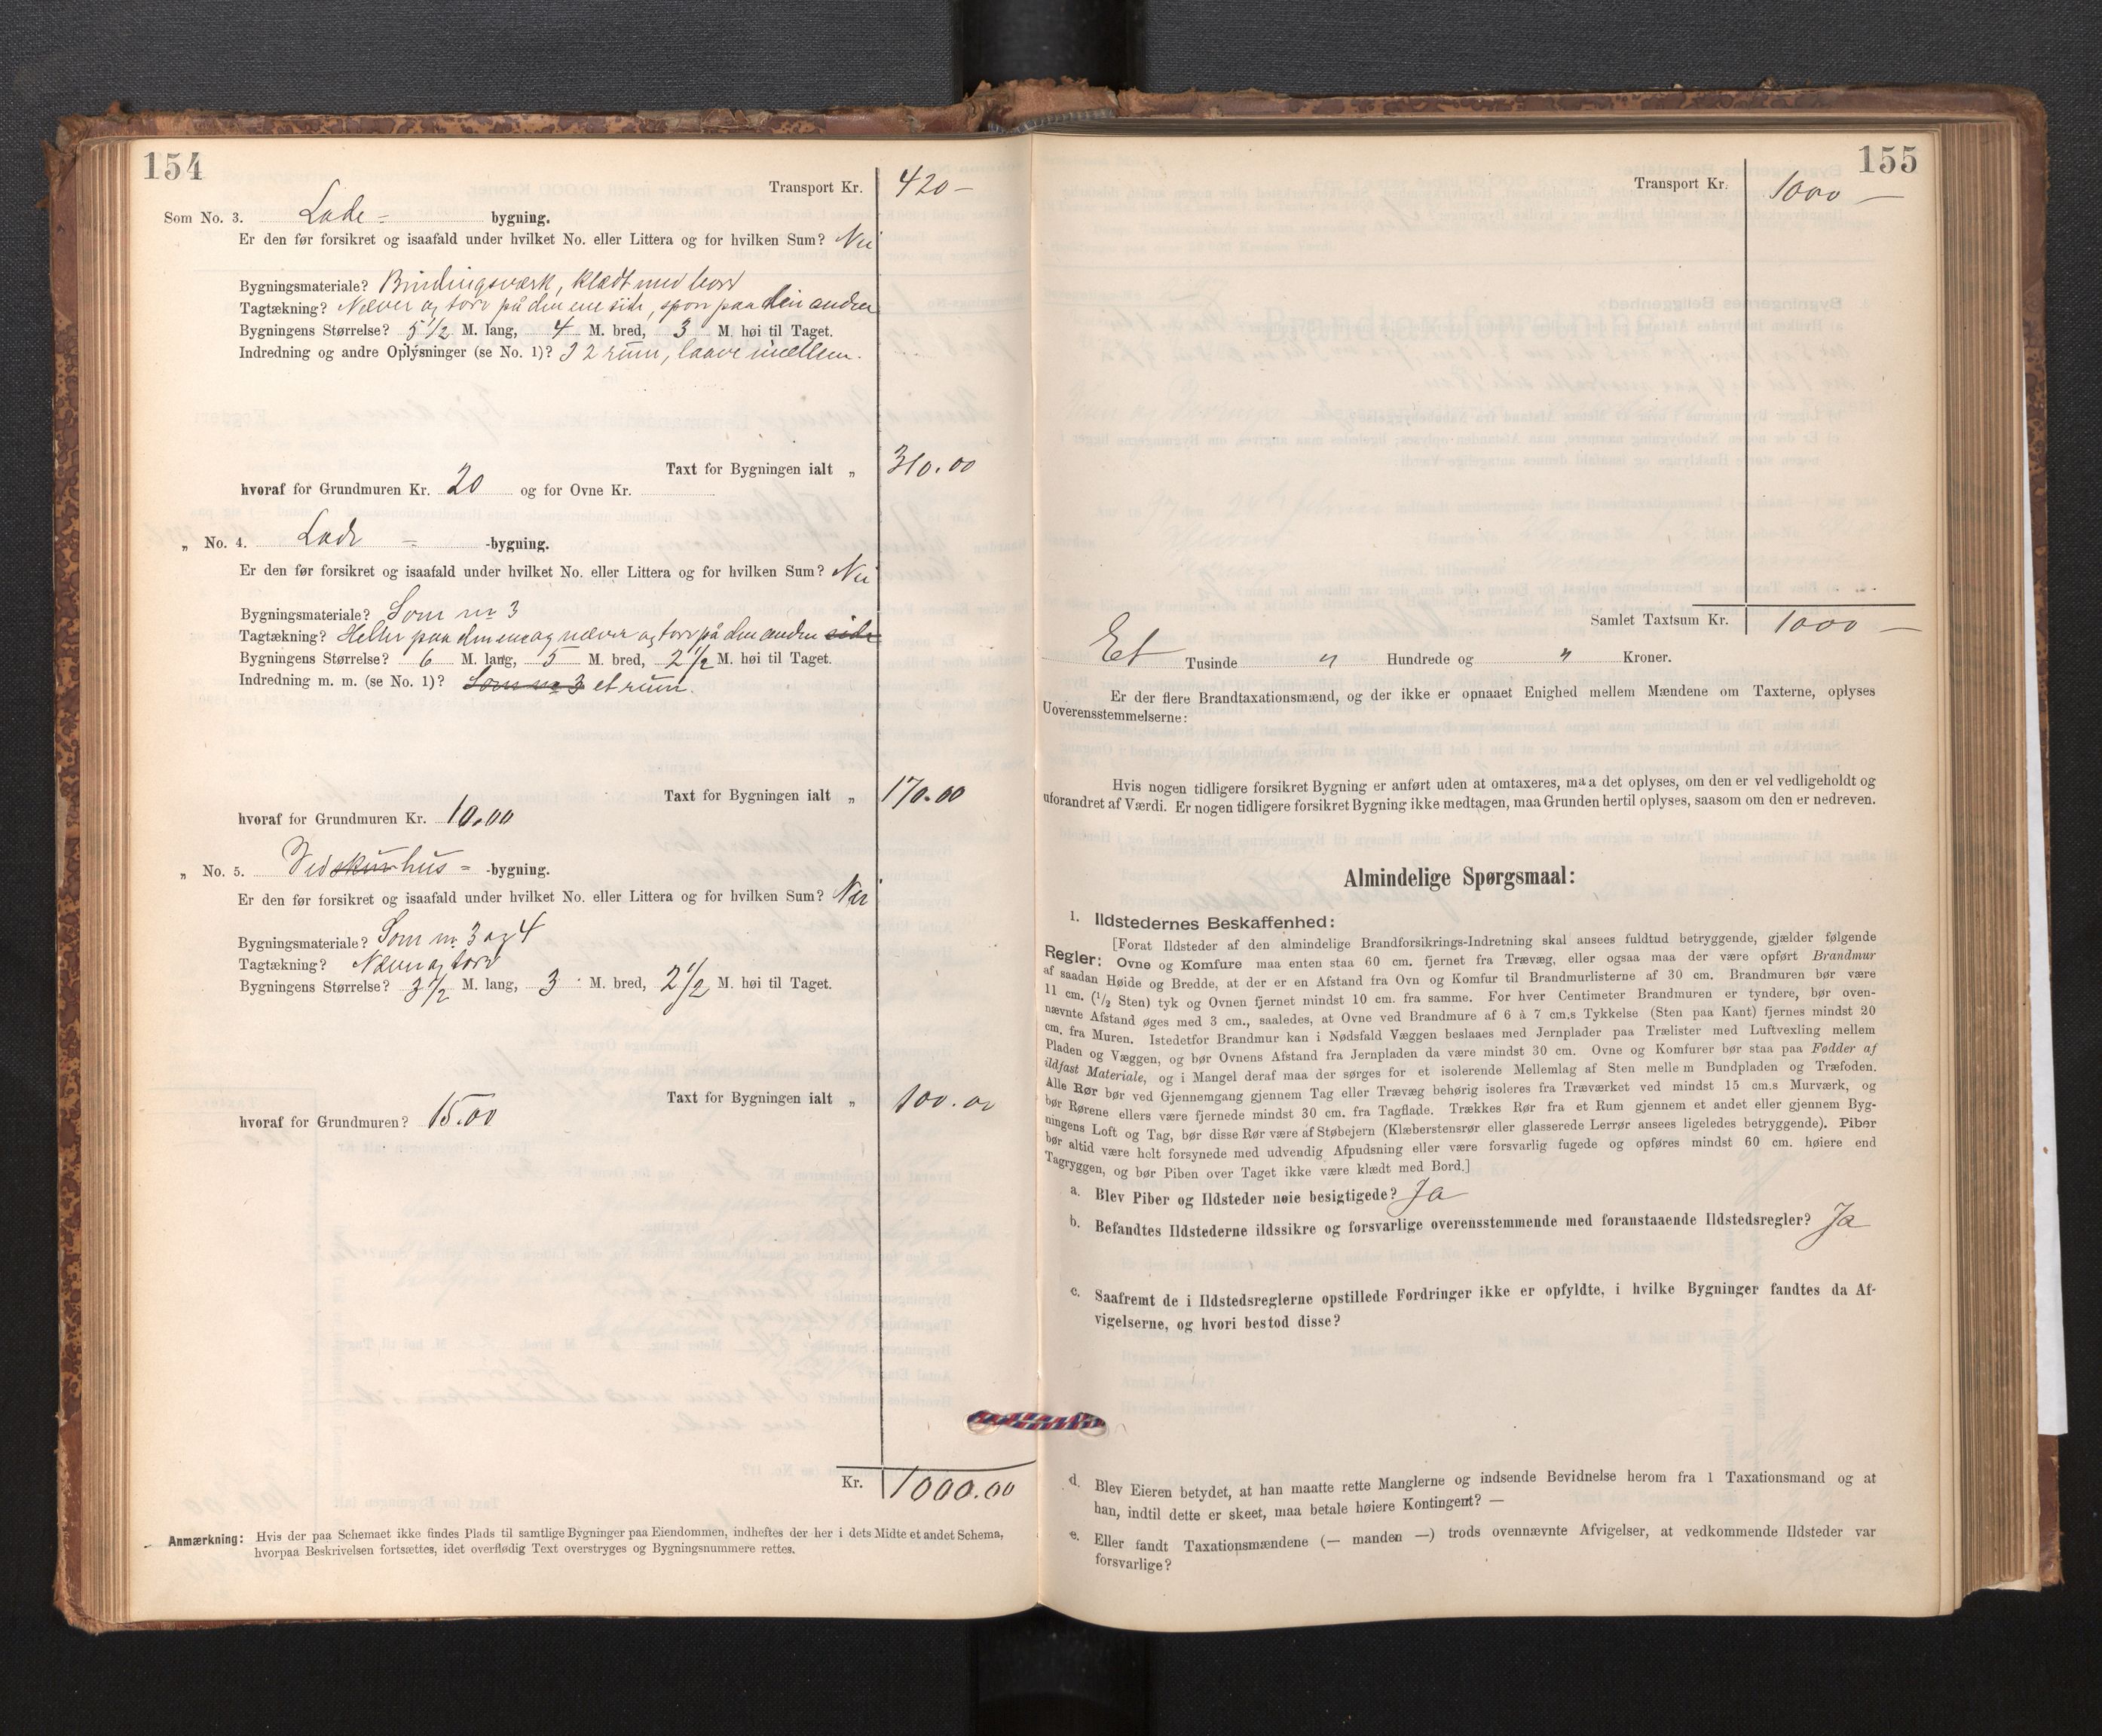 154
Transport Kr. 420 –
Som No. 3. Lade = bygning.
Er den før forsikret og isaafald under hvilket No. eller Littera og for hvilken Sum? Nei
Bygningsmateriale? Bindingsværk, klædt med bord
Tagtækning? Næver og torv på den ene side, spon paa den anden
Bygningens Størrelse? 5 1/2 M. lang, 4 M. bred, 3 M. høi til Taget.
Indredning og andre Oplysninger (se No. 1)? I 2 rum, laave imellem.
Taxt for Bygningen ialt „ 310.00
hvoraf for Grundmuren Kr. 20 og for Ovne Kr.
„ No. 4. Lade = -bygning.
Er den før forsikret og isaafald under hvilket No. eller Littera og for hvilken Sum? Nei
Bygningsmateriale? Som nr 3
Tagtækning? Heller paa den ene og næver og torv på den anden side
Bygningens Størrelse? 6 M. lang, 5 M. bred, 2 1/2 M. høi til Taget.
Indredning m. m. (se No. 1)? Som no 3 et rum.
Taxt for Bygningen ialt „ 170.00
hvoraf for Grundmuren Kr. 10.00
„ No. 5. Vedskurhus = -bygning.
Er den før forsikret og isaafald under hvilket No. eller Littera og for hvilken Sum? Nei
Bygningsmateriale? Som nr. 3 og 4
Tagtækning? Næver og torv
Bygningens Størrelse? 3 1/2 M. lang, 3 M. bred, 2 1/2 M. høi til Taget.
Taxt for Bygningen ialt „ 100.00
hvoraf for Grundmuren? 15.00
Kr. 1000.00
Anmærkning: Hvis der paa Schemaet ikke findes Plads til samtlige Bygninger paa Eiendommen, indheftes der her i dets Midte et andet Schema,
hvorpaa Beskrivelsen fortsættes, idet overflødig Text overstryges og Bygningsnummere rettes.
155
Transport Kr. 1000 –
Samlet Taxtsum Kr. 1000 –
Et Tusinde „ Hundrede og „ Kroner.
Er der flere Brandtaxationsmænd, og der ikke er opnaaet Enighed mellem Mændene om Taxterne, oplyses
Uoverensstemmelserne:
Hvis nogen tidligere forsikret Bygning er anført uden at omtaxeres, maa det oplyses, om den er vel vedligeholdt og
uforandret af Værdi. Er nogen tidligere forsikret Bygning ikke medtagen, maa Grunden hertil oplyses, saasom om den er nedreven.
Almindelige Spørgsmaal:
1. Ildstedernes Beskaffenhed:
[Forat Ildsteder af den almindelige Brandforsikrings-Indretning skal ansees fuldtud betryggende, gjælder følgende
Regler: Ovne og Komfure maa enten staa 60 cm. fjernet fra Trævæg, eller ogsaa maa der være opført Brandmur
af saadan Høide og Bredde, at der er en Afstand fra Ovn og Komfur til Brandmurlisterne af 30 cm. Brandmuren bør være
11 cm. (1/2 Sten) tyk og Ovnen fjernet mindst 10 cm. fra samme. For hver Centimeter Brandmuren er tyndere, bør oven-
nævnte Afstand øges med 3 cm., saaledes, at Ovne ved Brandmure af 6 à 7 cm.s Tykkelse (Sten paa Kant) fjernes mindst 20
cm. fra Muren. Istedetfor Brandmur kan i Nødsfald Væggen beslaaes med Jernplader paa Trælister med Luftvexling mellem
Pladen og Væggen, og bør Ovnens Afstand fra Jernpladen da være mindst 30 cm. Ovne og Komfurer bør staa paa Fødder af
ildfast Materiale, og i Mangel deraf maa der sørges for et isolerende Mellemlag af Sten mellem Bundpladen og Træfoden.
Alle Rør bør ved Gjennemgang gjennem Tag eller Trævæg behørig isoleres fra Træværket ved mindst 15 cm.s Murværk, og
bør Rørene ellers være fjernede mindst 30 cm. fra Tagflade. Trækkes Rør fra et Rum gjennem et andet eller gjennem Byg-
ningens Loft og Tag, bør disse Rør være af Støbejern (Klæberstensrør eller glasserede Lerrør ansees ligeledes betryggende). Piber
bør altid være helt forsynede med udvendig Afpudsning eller være forsvarlig fugede og opføres mindst 60 cm. høiere end
Tagryggen, og bør Piben over Taget ikke være klædt med Bord.]
a. Blev Piber og Ildsteder nøie besigtigede? Ja
b. Befandtes Ildstederne ildssikre og forsvarlige overensstemmende med foranstaaende Ildstedsregler? Ja
c. Saafremt de i Ildstedsreglerne opstillede Fordringer ikke er opfyldte, i hvilke Bygninger fandtes da Af-
vigelserne, og hvori bestod disse?
d. Blev Eieren betydet, at han maatte rette Manglerne og indsende Bevidnelse herom fra 1 Taxationsmand og at
han, indtil dette er skeet, maa betale høiere Kontingent? —
e. Eller fandt Taxationsmændene (— manden —) trods ovennævnte Afvigelser, at vedkommende Ildsteder var
forsvarlige?